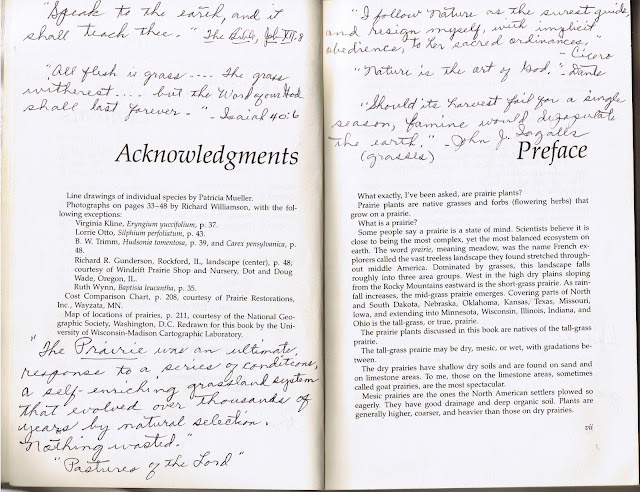 "Speak to the earth, and it
shall teach thee." The Bible, Job XII:8
"All flesh is grass .... The grass
witherest .... but the Word of our God
shall last forever." - Isaiah 40:6
Acknowledgments
Line drawings of individual species by Patricia Mueller.
Photographs on pages 33–48 by Richard Williamson, with the fol-
lowing exceptions:
Virginia Kline, Eryngium yuccifolium, p. 37.
Lorrie Otto, Silphium perfoliatum, p. 43.
B. W. Trimm, Hudsonia tomentosa, p. 39, and Carex pensylvanica, p.
48.
Richard R. Gunderson, Rockford, IL, landscape (center), p. 48;
courtesy of Windrift Prairie Shop and Nursery, Dot and Doug
Wade, Oregon, IL.
Ruth Wynn, Baptisia leucantha, p. 35.
Cost Comparison Chart, p. 208, courtesy of Prairie Restorations,
Inc., Wayzata, MN.
Map of locations of prairies, p. 211, courtesy of the National Geo-
graphic Society, Washington, D.C. Redrawn for this book by the Uni-
versity of Wisconsin-Madison Cartographic Laboratory.
"The Prairie was an ultimate
response to a series of conditions,
a self-enriching grassland system
that evolved over thousands of
years by natural selection.
Nothing wasted."
"Pastures of the Lord"
"I follow Nature as the surest guide,
and resign myself, with implicit
obedience, to her sacred ordinances."
- Cicero
"Nature is the art of God." Dante
"Should its harvest fail for a single
season, famine would depopulate
the earth." - John J. Ingalls
(grasses)
Preface
What exactly, I've been asked, are prairie plants?
Prairie plants are native grasses and forbs (flowering herbs) that
grow on a prairie.
What is a prairie?
Some people say a prairie is a state of mind. Scientists believe it is
close to being the most complex, yet the most balanced ecosystem on
earth. The word prairie, meaning meadow, was the name French ex-
plorers called the vast treeless landscape they found stretched through-
out middle America. Dominated by grasses, this landscape falls
roughly into three area groups. West in the high dry plains sloping
from the Rocky Mountains eastward is the short-grass prairie. As rain-
fall increases, the mid-grass prairie emerges. Covering parts of North
and South Dakota, Nebraska, Oklahoma, Kansas, Texas, Missouri,
Iowa, and extending into Minnesota, Wisconsin, Illinois, Indiana, and
Ohio is the tall-grass, or true, prairie.
The prairie plants discussed in this book are natives of the tall-grass
prairie.
The tall-grass prairie may be dry, mesic, or wet, with gradations be-
tween.
The dry prairies have shallow dry soils and are found on sand and
on limestone areas. To me, those on the limestone areas, sometimes
called goat prairies, are the most spectacular.
Mesic prairies are the ones the North American settlers plowed so
eagerly. They have good drainage and deep organic soil. Plants are
generally higher, coarser, and heavier than those on dry prairies.
vii